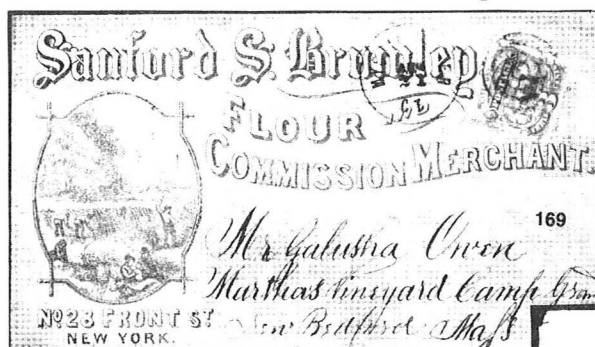 Sanford S. Brumley
FLOUR
COMMISSION MERCHANT.
169
Mr Galusha Owen
Marthas Vineyard Camp
New Bedford Mass
No 28 FRONT ST
NEW YORK.